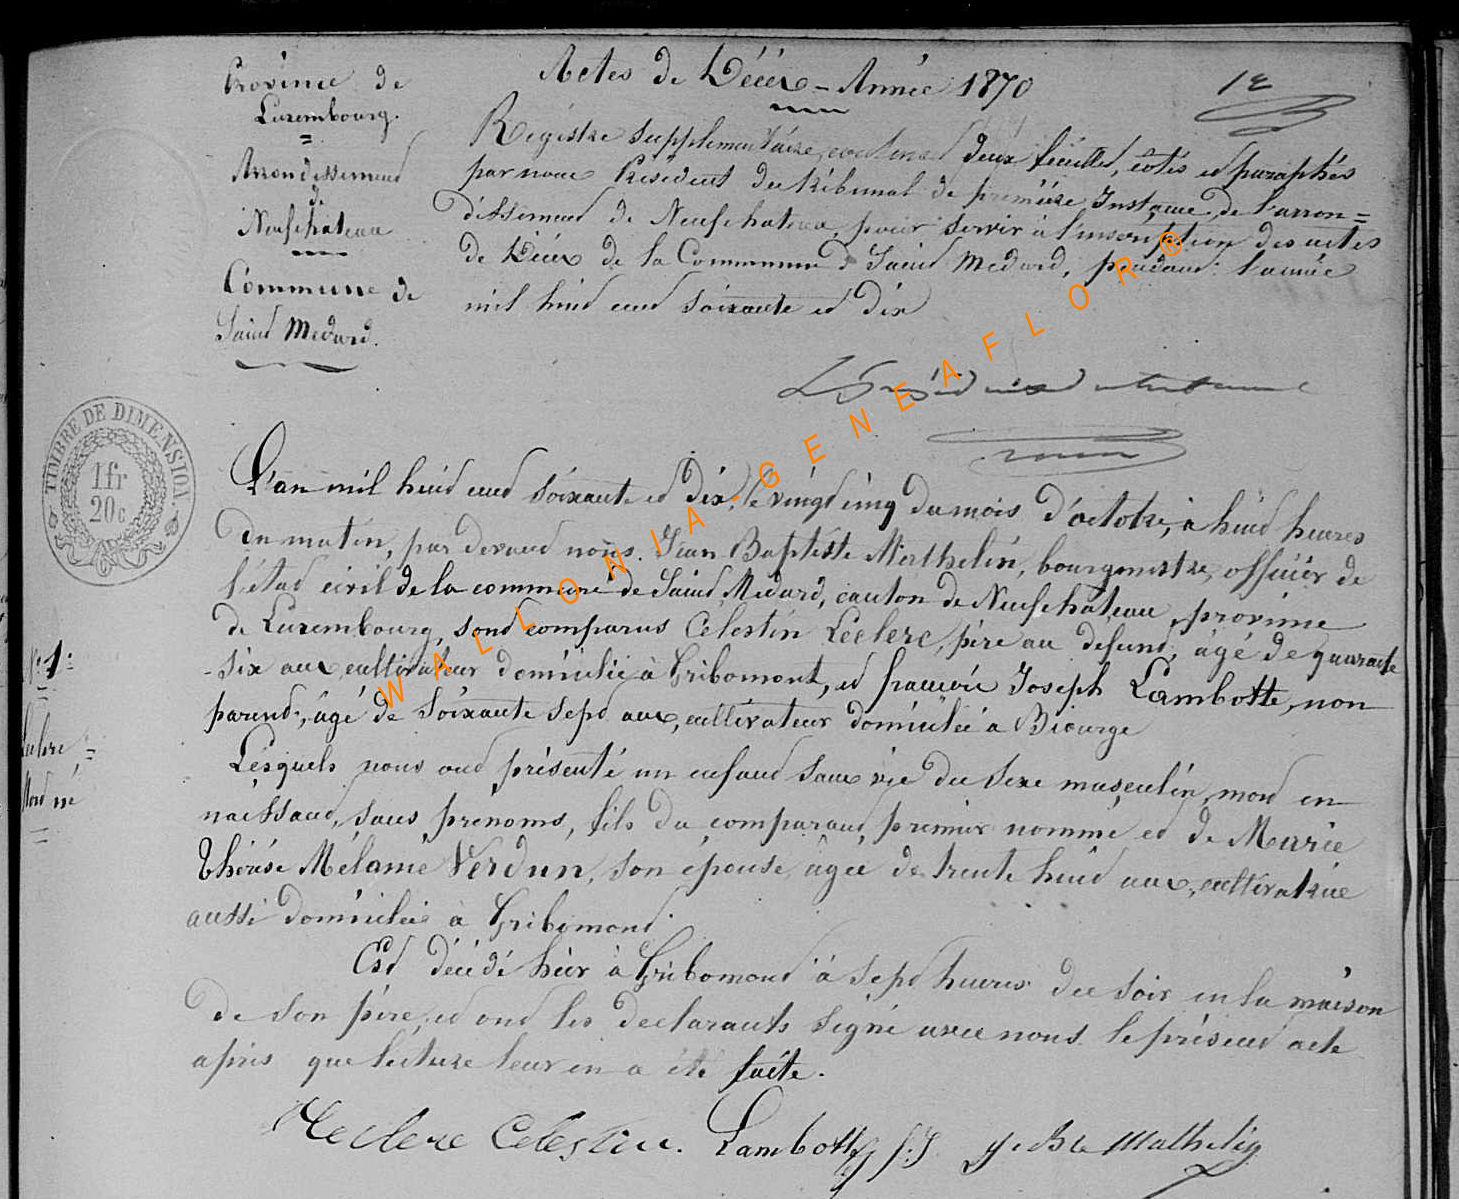 Actes de Décès - Année 1870
1e
Province de
Luxembourg.
Arrondissement
de
Neufchateau
Commune de
Saint Medard.
Registre supplementaire, contenant deux feuilles, cotés et paraphés
par nous Président du tribunal de première Instance de l'arron=
dissement de Neufchateau, pour servir à l'inscription des actes
de Décès de la Commune de Saint Medard, pendant l'année
mil huit cent soixante et dix
TIMBRE DE DIMENSION.
1 fr
20 c
L'an mil huit cent soixante et dix, le vingt cinq du mois d'octobre, à huit heures
du matin, par devant nous Jean Baptiste Mathelin, bourgmestre, officier de
l'état civil de la commune de Saint Medard, canton de Neufchâteau, province
de Luxembourg, sont comparus Célestin Leclerc, père au défunt, âgé de quarante
-six ans, cultivateur domicilié à Gribomont, et françois Joseph Lambotte, non
parent, âgé de soixante sept ans, cultivateur domicilié à Biourge
Lesquels nous ont présenté un enfant sans vie du sexe masculin, mort en
naissant, sans prénoms, fils du comparant premier nommé et de Marie
Thérèse Mélanie Verdun, son épouse, âgée de trente huit ans, cultivatrice
aussi domiciliée à Gribomont.
Est décédé hier à Gribomont à sept heures du soir en la maison
de son père, et ont les declarants signé avec nous le présent acte
après que lecture leur en a été faite.
N° 1
Leclerc,
Mort né
Leclerc Celestin. Lambotte f. J. J. Bte Mathelin
WALLONIA-GENEAFLOR®